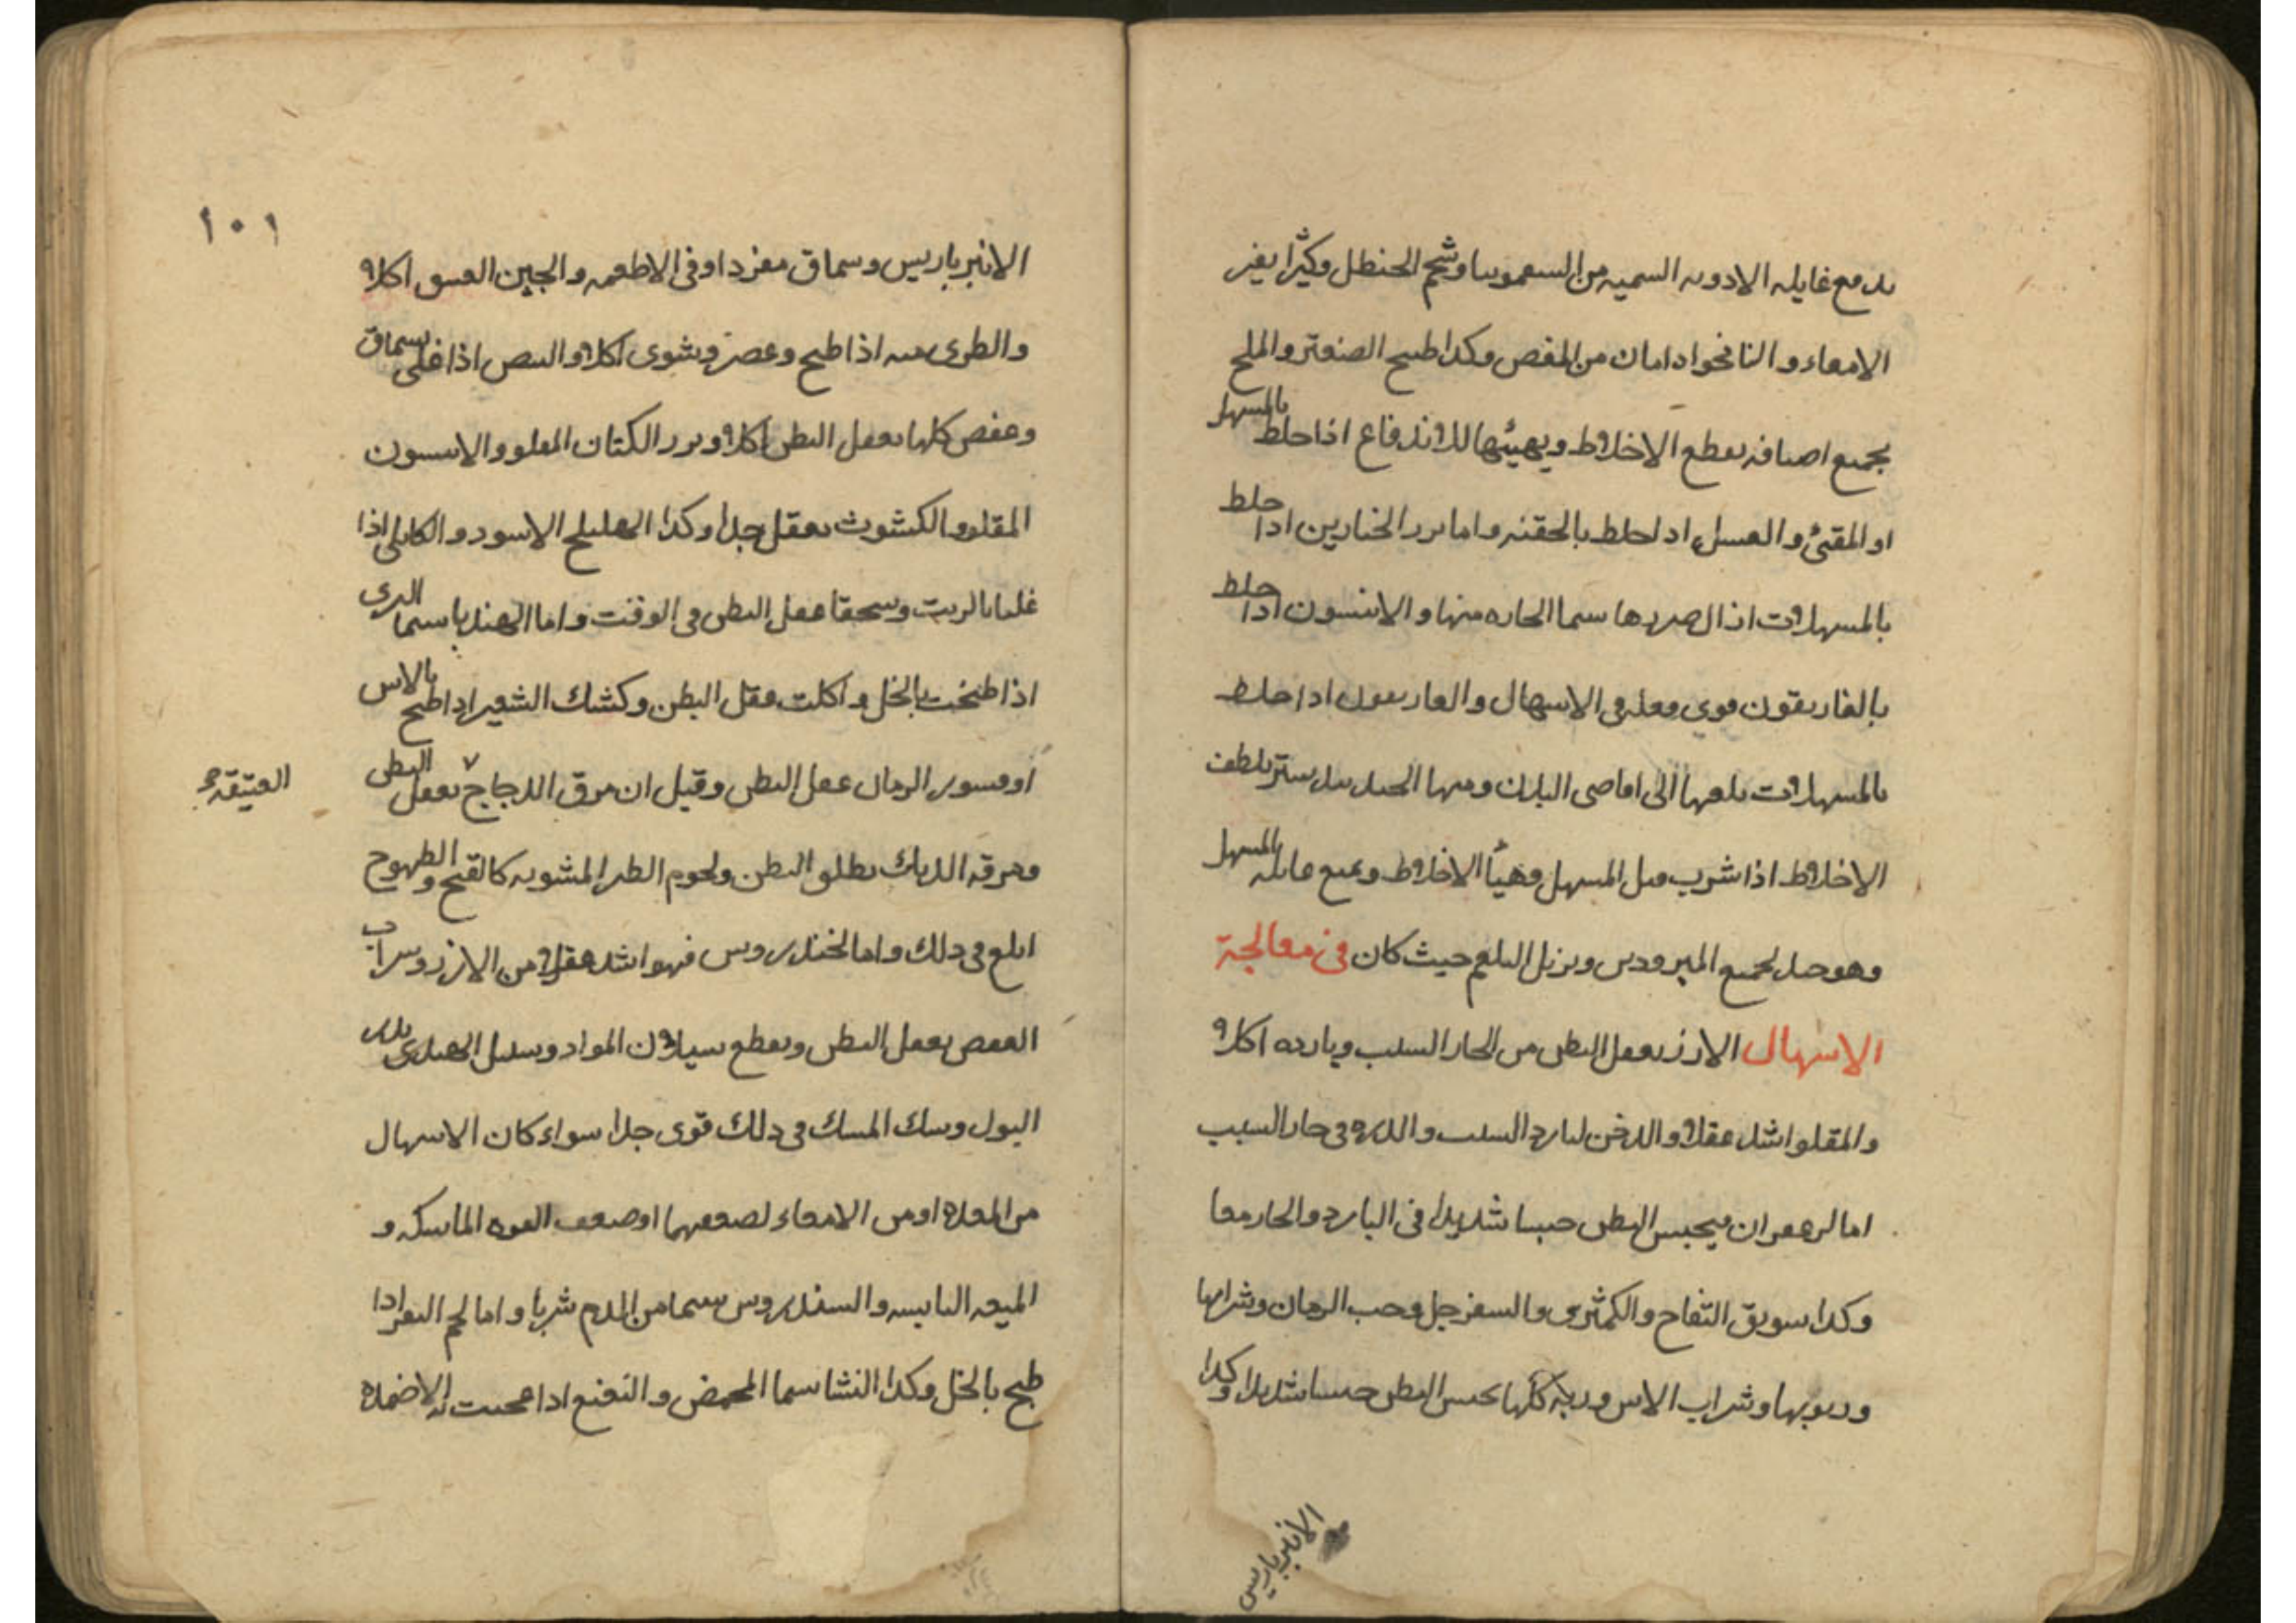 يدفع غايله الادويه السميه من السقمونيا وشحم الحنطل وكثيرا يغير
الامعاء والنانخواه امان من المغص وكدا طبيح الصعتر والملح
بجميع اصنافه يقطع الاخلاط ويهيئها للاندفاع اذا خلط بالمسهل
او المقئ والعسل ادا خلط بالحقنه واما بزر الخيارين ادا خلط
بالمسهلات ازال ضررها سيما الحاره منها والانيسون ادا خلط
بالغاريقون قوي فعله في الاسهال والغاريقون ادا خلط
بالمسهلات بلغها الى اقاصى البدن ومنها الجندبيدستر يلطف
الاخلاط اذا شرب قبل المسهل وهيأ الاخلاط ويمنع غايله المسهل
وهو جيد لجميع المبرودين ويزيل البلغم حيث كان في معالجة
الاسهال الارز يعقل البطن من الحار السبب وبارده اكلا
والمقلو اشد عقلا والدخن لبارد السبب والدره في حار السبب
اما الزعفران فيحبس البطن حبسا شديدا في البارد والحار معا
وكدا سويق التفاح والكمثرى والسفرجل وحب الرمان وشرابها
وربوبها وشراب الاس وربه كلها تحبس البطن حبسا شديدا وكدا
الانبرباريس
١٠١
الانبرباريس وسماق مفردا وفى الاطعمه والجبن العتيق اكلا
والطرى منه اذا طبخ وعصر وشوى اكلا والبيض اذا غلى بسماق
وعفص كلها يعقل البطن اكلا وبزر الكتان المقلو والانيسون
المقلو والكشوث يعقل جدا وكدا الهليلج الاسود والكابلى اذا
غليا بالزيت وسحقا عقل البطن في الوقت واما الهندبا سيما البرى
اذا طبخت بالخل واكلت عقل البطن وكشك الشعير ادا طبح بالاس
او قشور الرمان عقل البطن وقيل ان مرق الدجاج يعقل البطن
العتيقة
ومرقه الديك يطلق البطن ولحوم الطير المشويه كالقبج والطيهوج
ابلغ في دلك واما الخندروس فهو اشد عقلا من الارز وشراب
العفص يعقل البطن ويقطع سيلان المواد وسنبل الهندى يدر
البول وسك المسك في دلك قوى جدا سواء كان الاسهال
من المعده او من الامعاء لضعفهما او ضعف القوه الماسكه و
الميعه اليابسه والسندروس سيما من الدم شربا واما لحم البقر ادا
طبخ بالخل وكدا النشا سيما المحمض والنعنع ادا عجنت به الاضمده